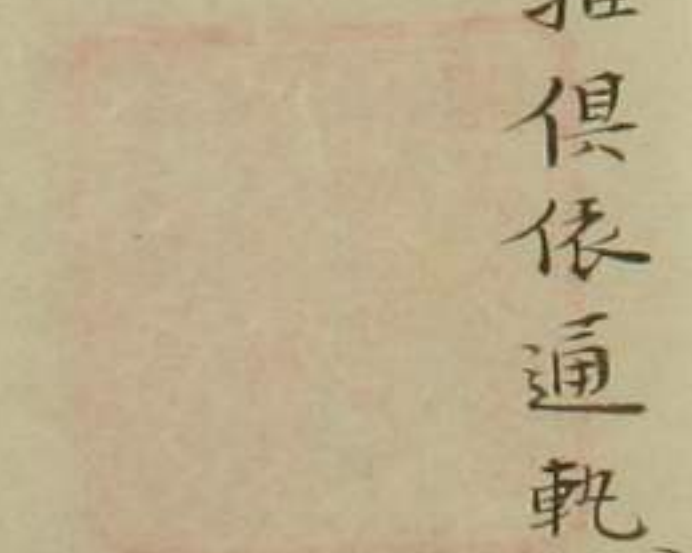 俱依通軌